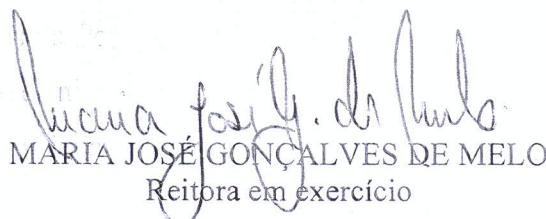 Maria José G. de Melo
MARIA JOSÉ GONÇALVES DE MELO
Reitora em exercício